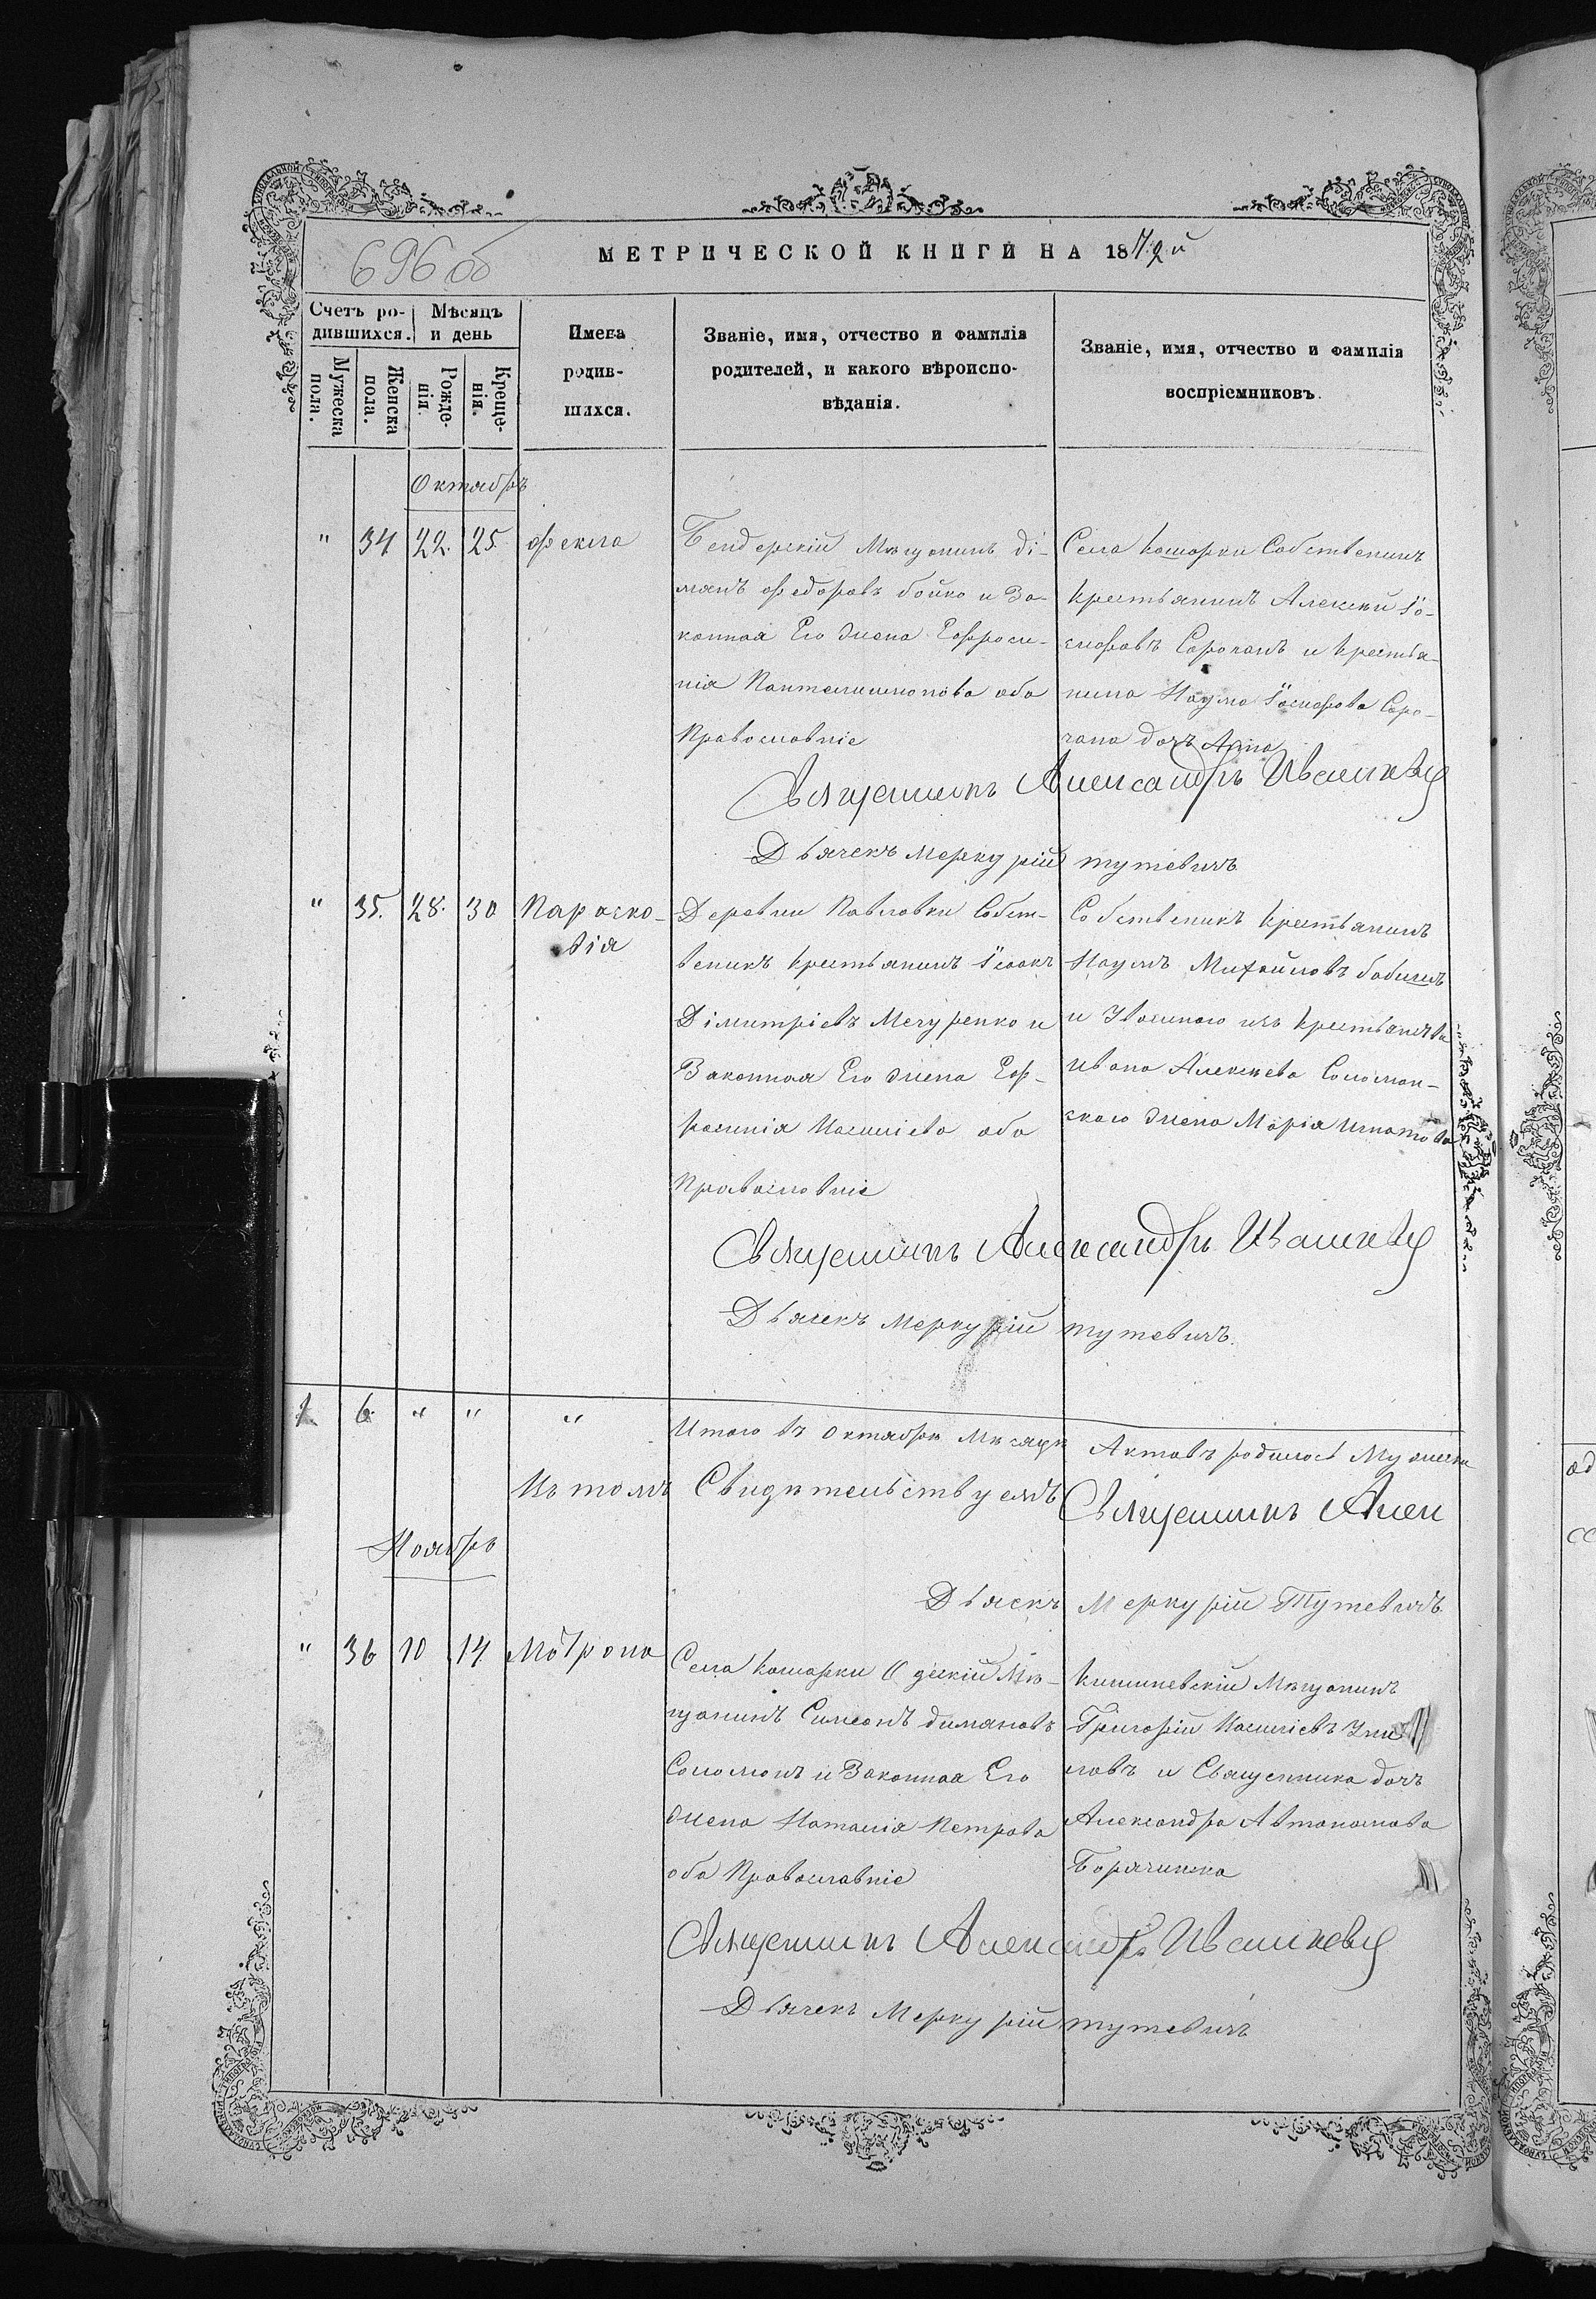 696 об
МЕТРИЧЕСКОЙ КНИГИ НА 1872й
Счетъ ро-
дившихся.
Мѣсяцъ
и день
Мужеска
пола.
Женска
пола.
Рожде-
нія.
Креще-
нія.
Имена
родив-
шихся.
Званіе, имя, отчество и фамилія
родителей, и какого вѣроиспо-
вѣданія.
Званіе, имя, отчество и фамилія
воспріемниковъ.
Октябрь
" 34 22. 25. Фекла
Бендерскій Мѣщанинъ Ді-
манъ Федоровъ бойко и За-
конная Его Жена Ефроси-
нія Пантелимонова оба
Православніе
Села Кошарки Собственикъ
Крестьянинъ Алексѣй Іо-
сифовъ Сорочанъ и Крестья-
нина Наума Іосифова Соро-
чана дочь Анна
Священникъ Александръ Ивашкевъ
Дьячекъ Меркурій тутевичъ
" 35. 28. 30 Параско-
вія
Деревни Павловки Собст-
веникъ Крестьянинъ Ісаакъ
Дімитріевъ Мечуренко и
Законная Его Жена Еф-
росинія Василіева оба
Православніе
Собственикъ Крестьянинъ
Наумъ Михайловъ бабичъ
и Уволиного изъ Крестьянъ
Ивана Алексѣева Соломон-
ского Жена Марія Игнатова
Священникъ Александръ Ивашкевъ
Дьячекъ Меркурій тутевичъ.
1. 6. " " "
Итого въ Октябрѣ Мѣсяцѣ Актовъ родилось Мужеска
Въ томъ Свидѣтельствуемъ Священникъ Алек
Ноябрь
Дьячекъ Меркурій Тутевичъ
" 36 10 14. Мотрона
Села Кошарки Одескій Мѣ-
щанинъ Симеонъ Димановъ
Соломонъ и Законная Его
Жена Наталія Петрова
оба Православніе
Кишиневскій Мѣщанинъ
Григорій Василіевъ
ловъ и Священника дочь
Александра Автономова
Борячинска
Священникъ Александръ Ивашкевъ
Дьячекъ Меркурій тутевичъ